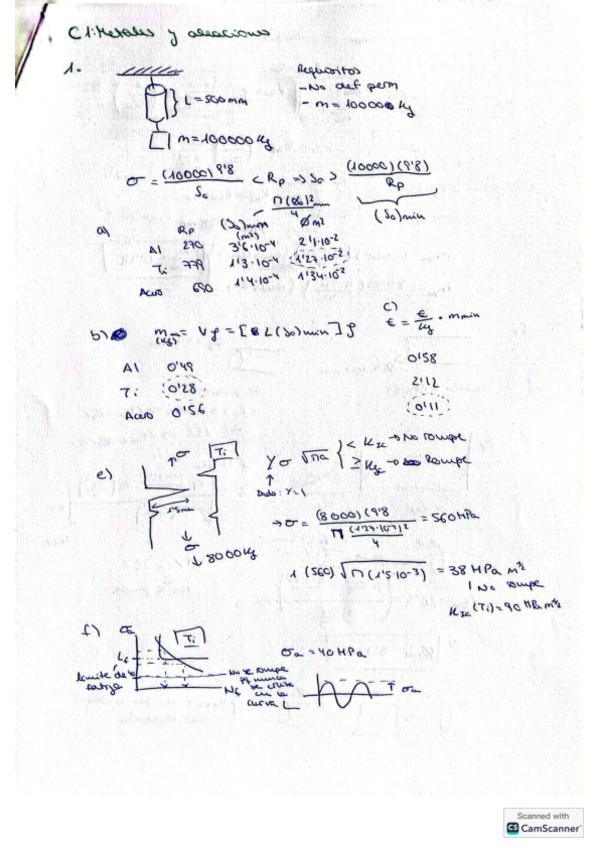 C1: Metales y aleaciones
1.
L = 500 mm
m = 100000 Kg
Requisitos
- No def perm
- m = 100000 Kg
σ = (10000) 9'8 / S₀ < Rp => S₀ > (10000)(9'8) / Rp
(S₀)min
π(ø₀)²min / 4
a) Rp (S₀)min (m²) Ø m²
Al 270 3'6·10⁻⁴ 2'1·10⁻²
Ti 779 1'3·10⁻⁴ 1'27·10⁻²
Acero 690 1'4·10⁻⁴ 1'34·10⁻²
b) m (Kg) = Vρ = [L(S₀)min] ρ
Al 0'49
Ti 0'28
Acero 0'56
c) € = €/Kg · m min
0'58
2'12
0'11
e) Ti
σ
1'5mm
σ
8000 Kg
Y σ √πa
< KIC → No rompe
≥ KIC → Rompe
Dado: Y=1
→ σ = (8000)(9'8 / π (1'27·10⁻²)² / 4 = 560 MPa
1 (560) √π(1'5·10⁻³) = 38 MPa m½
No rompe
KIC (Ti) = 90 MPa m½
f) σa
Ti
Lf
límite de fatiga
Nf
No se rompe
pq nunca
se corta
con la
curva L
σa = 40 MPa
σa
Scanned with
CS CamScanner